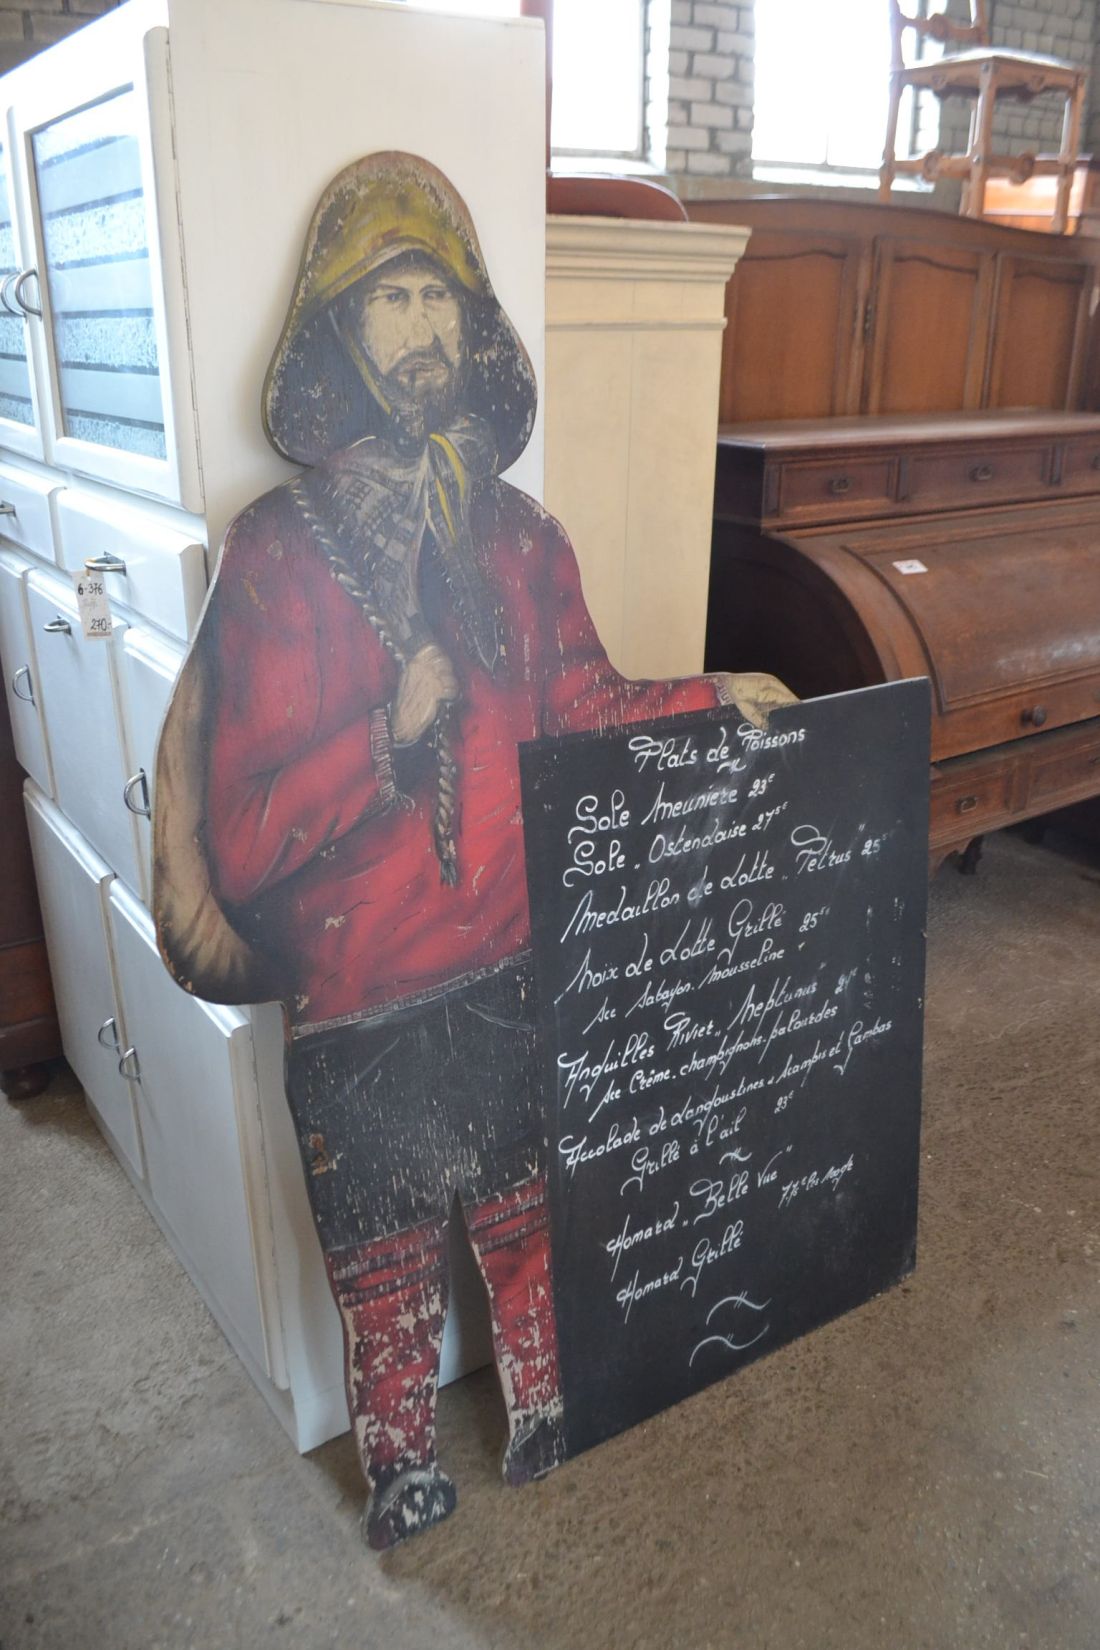 Plats de Poissons
Sole Meuniere 23€
Sole „Ostendaise 27,5€
Medaillon de Lotte „Petrus" 25
Noix de Lotte Grillé 25,5€
sce Sabayon. mousseline
Anguilles Rivier „Neptunus"
sce Crême-champignons-palourdes
Accolade de Langoustines, Scampis et Gambas
Grillé à l'ail 23€
Homard „Belle Vue"
Homard Grillé
6-376
270,-